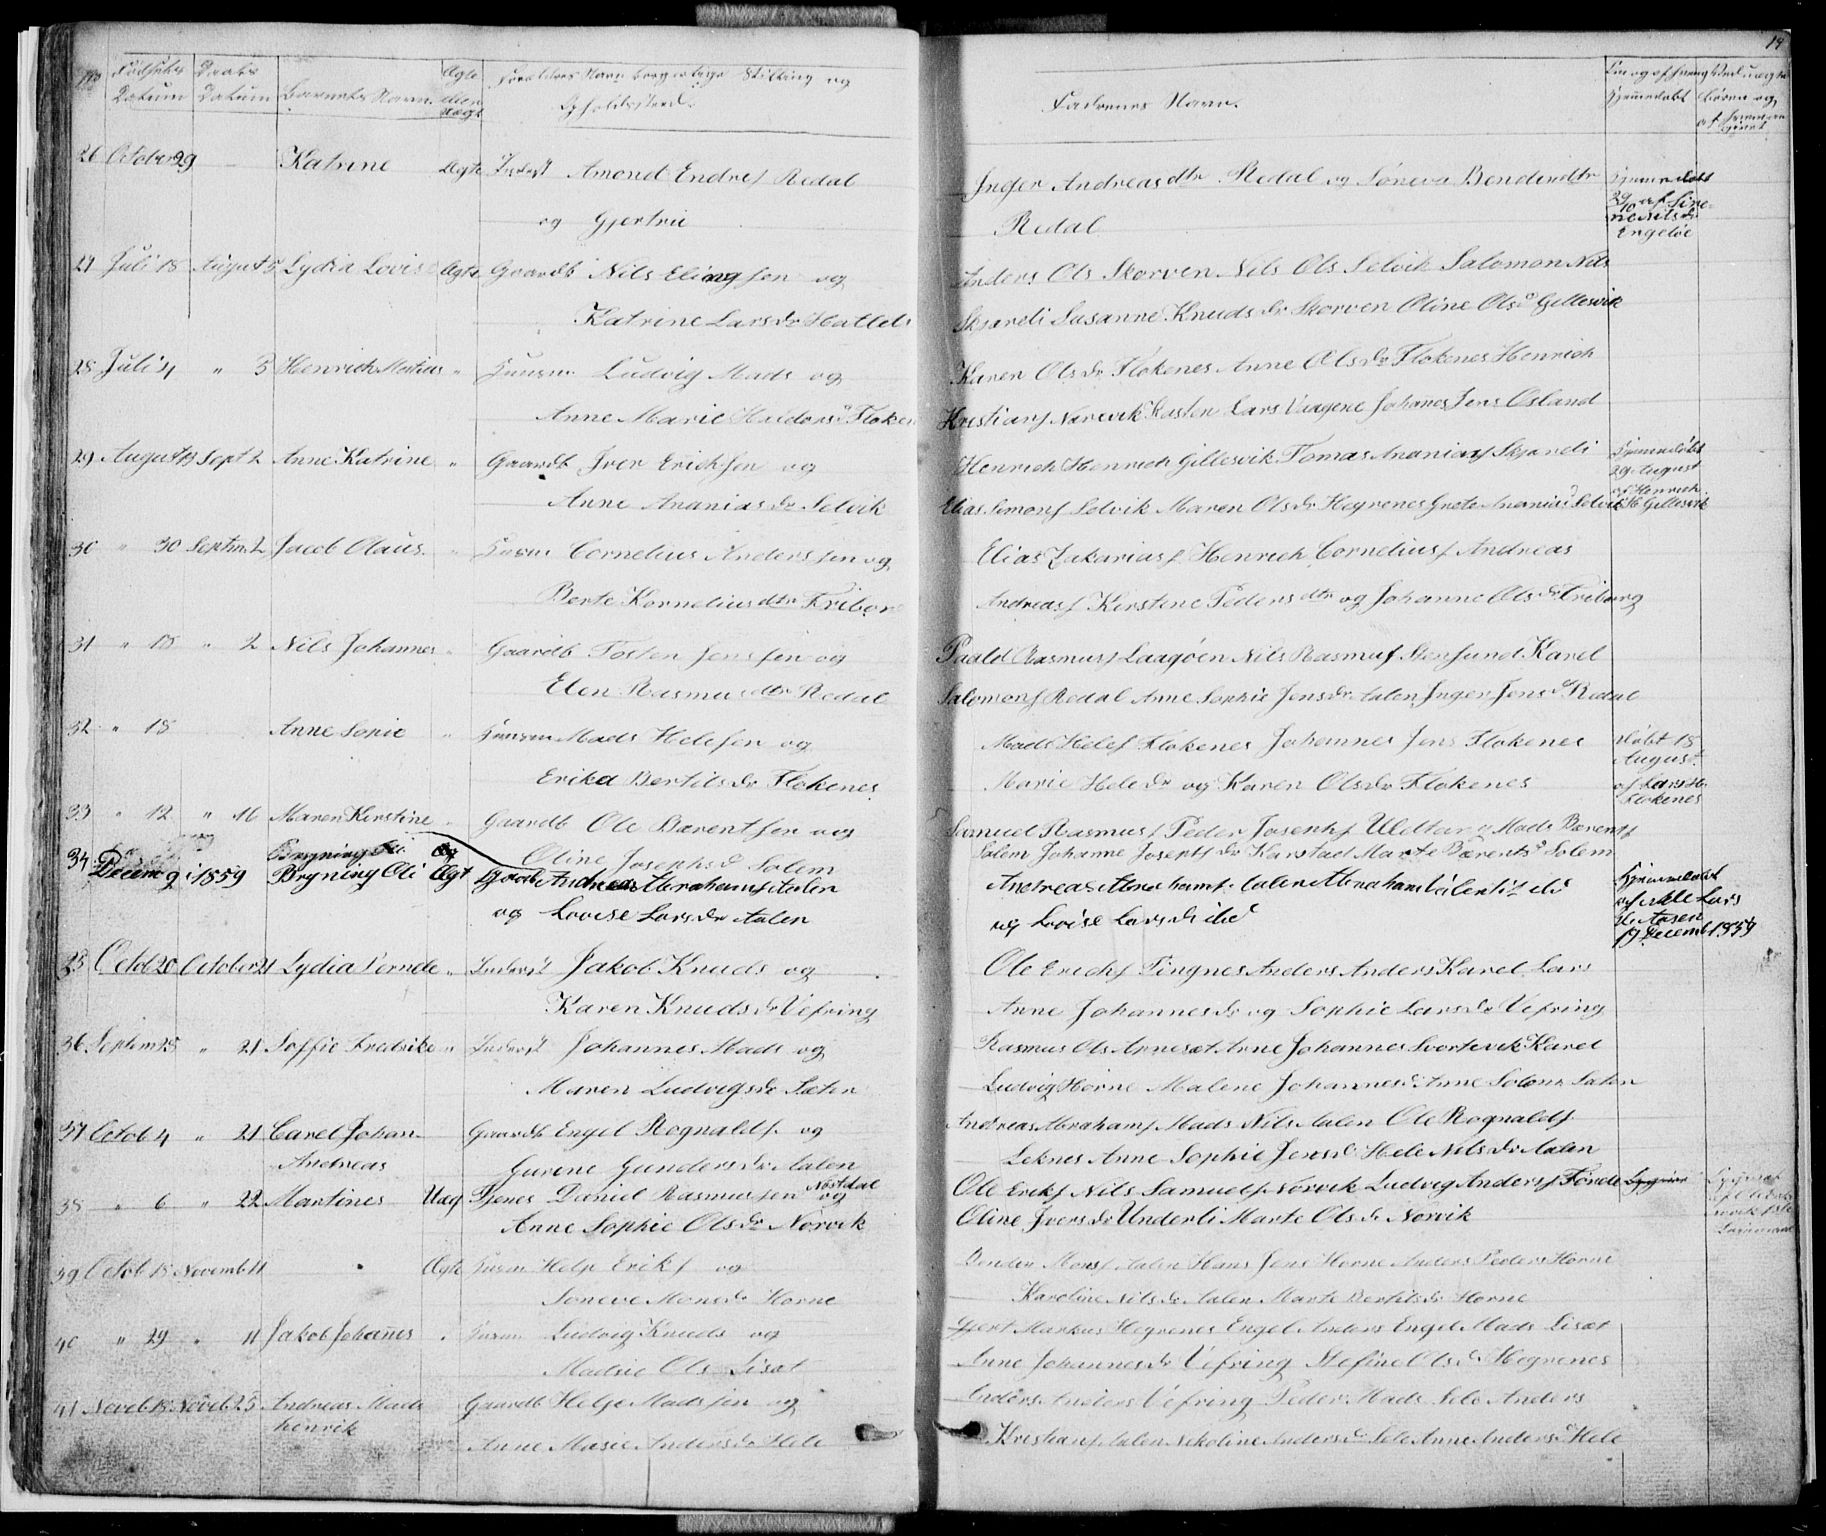 19
No Fødsels Datum Daabs Datum Barnets Navn. Ægte eller Uægte Forældres Navn borgerlige Stilling og Opholdssted.
Fadrenes Navn.
26 October 29 Katrine Ægte Inderst Amond Endres Redal
og Gjertru
Inger Andreasdtr Redal og Søneva Bendixdtr
Redal
Hjemmedøbt 29/10 af Sirene Nilsdr Engeløe
27 Juli 15 August 5 Lydia Lovise Ægte Gaardb Nils Elingsen og
Katrine Larsdr Hatlele
Anders Ols Skorven Nels Ols Selvik Salomon Nils
Skjareli Susanne Knudsdr Skorven Oline Olsd Gillesvik
28 Juli 4 " 5 Henrich Matias " Huusm Ludvig Mads og
Anne Marie Haldorsd Floken
Karen Olsdr Flokenes Anne Olsdr Flokenes Henrich
Kristians Norevik Kasten Lars Vaagene Johanes Jens Osland
29 August Sept 2 Anne Katrine " Gaardb Iver Ericksen og
Anne Ananiasdr Selvik
Henrich Henrich Gillesvik Tomas Ananias Skjareli
Elias Simons Selvik Maren Olsdr Hegrenes Grete Ananiasd Selvik
Hjemmedøbt 29 August af Henrich H Gillesvik
30 " 30 Septm 2 Jacob Olaus " Husm Cornelius Anderssen og
Berte Korneliusdtr Fribor
Elias Zakarias Henrich Cornelius Andreas
Andreas Kirstine Pedersdtr og Johanne Olsdr Friborg
31 " 18 " 2 Nils Johannes " Gaardb Tosten Jenssen og
Elen Rasmusdtr Redal
Paald Rasmus Laagøen Nils Rasmus Stensund Karel
Salomons Redal Anne Sophie Jensdr Aalen Inger Jensd Redal
32 " 18 Anne Sopie " Huusm Mads Helesen og
Erika Bertilsdr Flokenes
Mads Heles Flokenes Johannes Jens Flokenes
Marie Heledr og Karen Olsdr Flokenes
døbt 18 August af Lars H. Flokenes
33 " 12 " 16 Maren Kirstine " Gaardb Ole Bærentsen og
Oline Josephsd Solem
Samuel Rasmus Peder Josephs Mads Bærents
Solem Johanne Josephsdr Karstad Marte Bærentsd Solem
34 Decem 9 1859 Brynjng Oli Ægt Gaardb Andreas Abrahams Aalen
og Lovise Larsdr Aalen
Andreas Abrahams Aalen Abraham ibd
og Lovise Larsdr ibd
Hjemmedøbt af Lars Aasen 19 Decemb 1859
35 Octob 20 October 21 Lydia Pernele " Inderst Jakob Knuds og
Karen Knudsdr Vefring
Ole Erichs Tingnes Anders Anders Karel Lars
Anne Johannesdr og Sophie Larsdr Vefring
36 Septem 25 " 21 Soffie Fredrike " Inderst Johannes Mads og
Maren Ludvigsdr Sæten
Rasmus Ols Arneset Arne Johannes Svortevik Karel
Ludvig Horne Malene Johannesd Anne Solom Saten
37 Octob 4 " 21 Carel Johan Gaardb Engel Rognalds og
Andreas Gurine Gundersdr Aalen
Andreas Abrahams Mads Nils Aalen Ole Rognalds
Leknes Anne Sophie Jensd Hele Nilsdr Aalen
38 " 6 " 22 Martines Uæg Tjenes Daniel Rasmussen Nostdal og
Anne Sophie Olsdr Norvik
Ole Eriks Nils Samuels Norvik Ludvig Anders Førde
Oline Iversdr Underli Marte Olsdr Norvik
39 Octob 15 Novemb 11 Ægte Husm Helje Eriks og
Soneve Monsdr Horne
Bendix Mons Aalen Hans Jens Horne Anders Peders Horne
Karoline Nilsdr Aalen Marte Bertilsdr Horne
40 " 29 " 11 Jakob Johanes " Husm Ludvig Knuds og
Madsie Ols Lisæt
Gjert Markus Hegrenes Engel Anders Engel Mads Lisæt
Anne Johannesdr Vefring Stefine Olsdr Hegrenes
41 Noveb 18 Noveb 25 Andreas Mads Gaardb Helje Madssen og
henrik Anne Marie Andersdr Hele
Anders Anders Vefring Peder Mads Sele Anders
Kristians Aalen Nikoline Andersd Sele Anne Andersd Hele